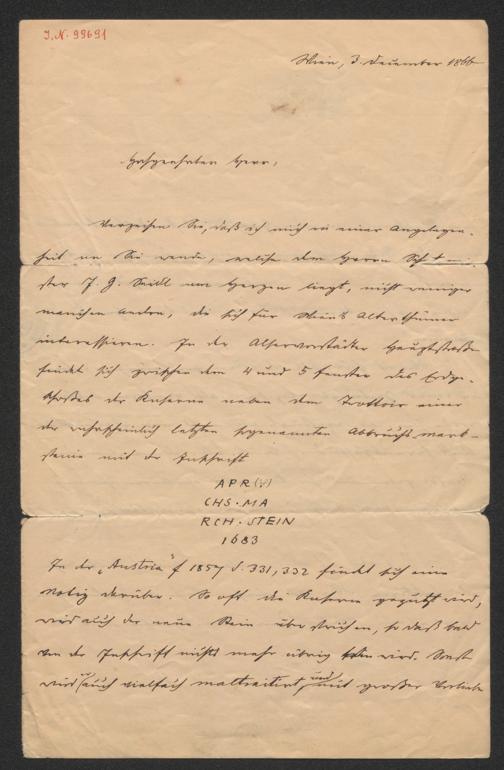 I. N. 99691
Wien, 3. December 1866
Hochgeehrter Herr,
Verzeihen Sie, daß ich mich in einer Angelegen-
heit an Sie wende, welche dem Herrn
ster J. G. Seidl am Herzen liegt, nicht weniger
manchen andren, die sich für Wiens Alterthümer
interessieren. In der Alservorstädter Hauptstraße
findet sich zwischen dem 4 und 5 Fenster des Erdge-
schoßes der Kaserne neben dem Trottoir einer
der wahrscheinlich letzten sogenannten Abbruchs mark-
steine mit der Inschrift
APR(V)
CHS·MA
RCH·STEIN
1683
In der „Austria“ f 1857 S. 331, 332 findet sich eine
Notiz darüber. So oft die Kaserne geputzt wird,
wird auch der neue Stein überstrichen, so daß bald
von der Inschrift nichts mehr übrig wird. Sonst
wird er auch vielfach maltraitirt, und mit großer Vorliebe